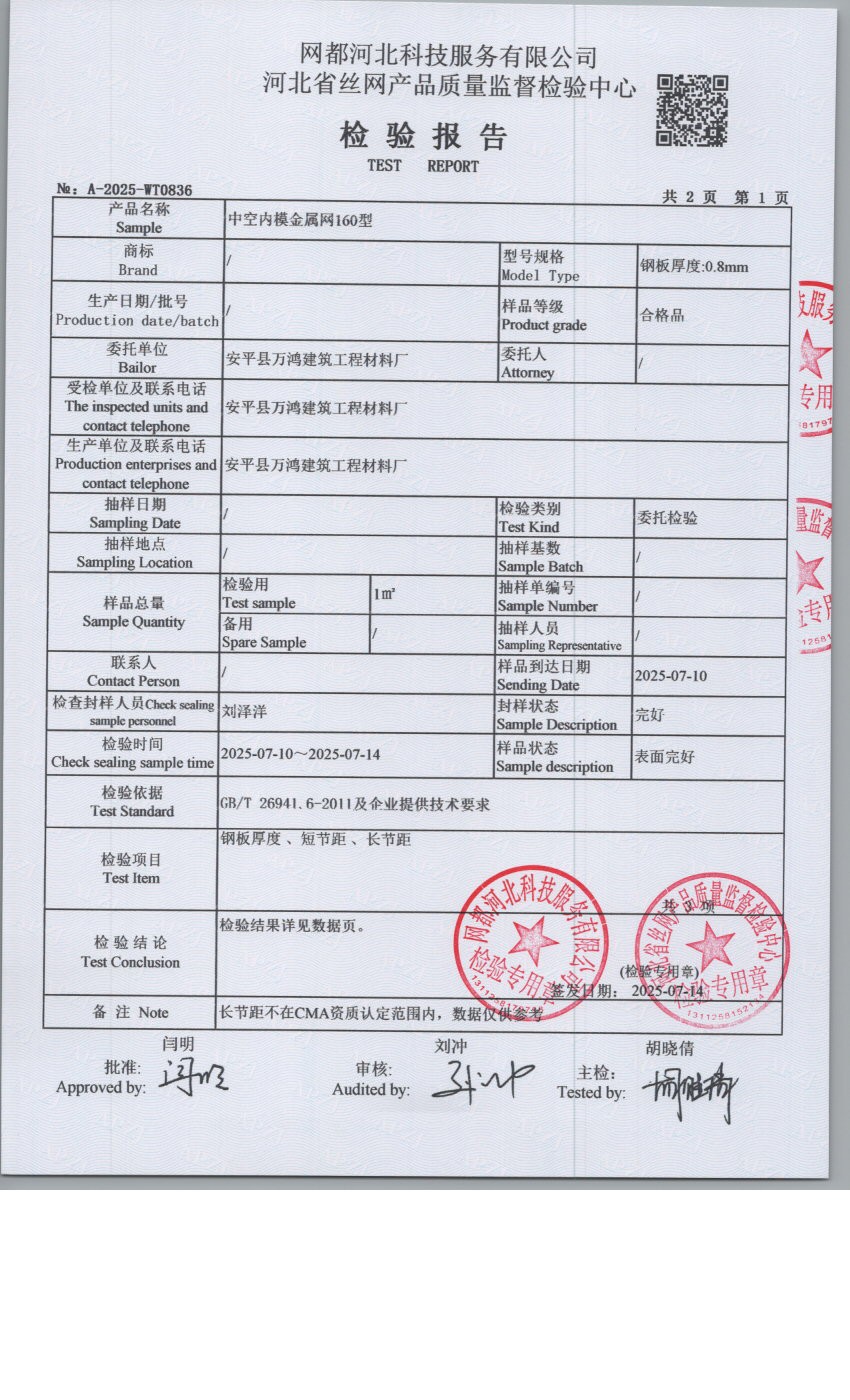 网都河北科技服务有限公司
河北省丝网产品质量监督检验中心
检验报告
TEST REPORT
№: A-2025-WT0836
共 2 页 第 1 页
产品名称
Sample
中空内模金属网160型
商标
Brand
/
型号规格
Model Type
钢板厚度:0.8mm
生产日期/批号
Production date/batch
/
样品等级
Product grade
合格品
委托单位
Bailor
安平县万鸿建筑工程材料厂
委托人
Attorney
/
受检单位及联系电话
The inspected units and
contact telephone
安平县万鸿建筑工程材料厂
生产单位及联系电话
Production enterprises and
contact telephone
安平县万鸿建筑工程材料厂
抽样日期
Sampling Date
/
检验类别
Test Kind
委托检验
抽样地点
Sampling Location
/
抽样基数
Sample Batch
/
样品总量
Sample Quantity
检验用
Test sample
1㎡
抽样单编号
Sample Number
/
备用
Spare Sample
/
抽样人员
Sampling Representative
/
联系人
Contact Person
/
样品到达日期
Sending Date
2025-07-10
检查封样人员Check sealing
sample personnel
刘泽洋
封样状态
Sample Description
完好
检验时间
Check sealing sample time
2025-07-10～2025-07-14
样品状态
Sample description
表面完好
检验依据
Test Standard
GB/T 26941.6-2011及企业提供技术要求
检验项目
Test Item
钢板厚度 、短节距 、长节距
共 3 项
检 验 结 论
Test Conclusion
检验结果详见数据页。
(检验专用章)
签发日期: 2025-07-14
网都河北科技服务有限公司
检验专用章
河北省丝网产品质量监督检验中心
检验专用章
备 注 Note
长节距不在CMA资质认定范围内，数据仅供参考
闫明
刘冲
胡晓倩
批准:
Approved by:
闫明
审核:
Audited by:
刘冲
主检:
Tested by:
胡晓倩
技服务
专用
量监督
专用